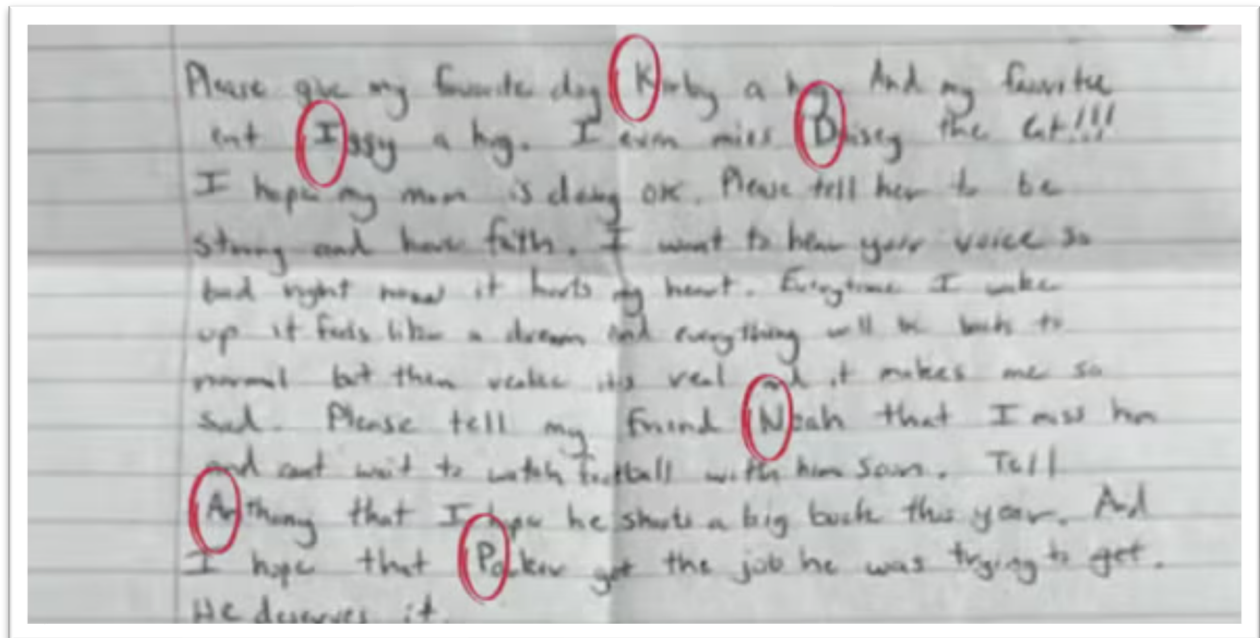 Please give my favorite dog Kirby a hug. And my favorite
cat Iggy a hug. I even miss Daisey the Cat!!!
I hope my mom is doing OK. Please tell her to be
strong and have faith. I want to hear your voice so
bad right now it hurts my heart. Everytime I wake
up it feels like a dream and everything will be back to
normal but then realize its real and it makes me so
sad. Please tell my friend Noah that I miss him
and cant wait to watch football with him soon. Tell
Anthony that I hope he shoots a big buck this year. And
I hope that Parker got the job he was trying to get.
He deserves it.